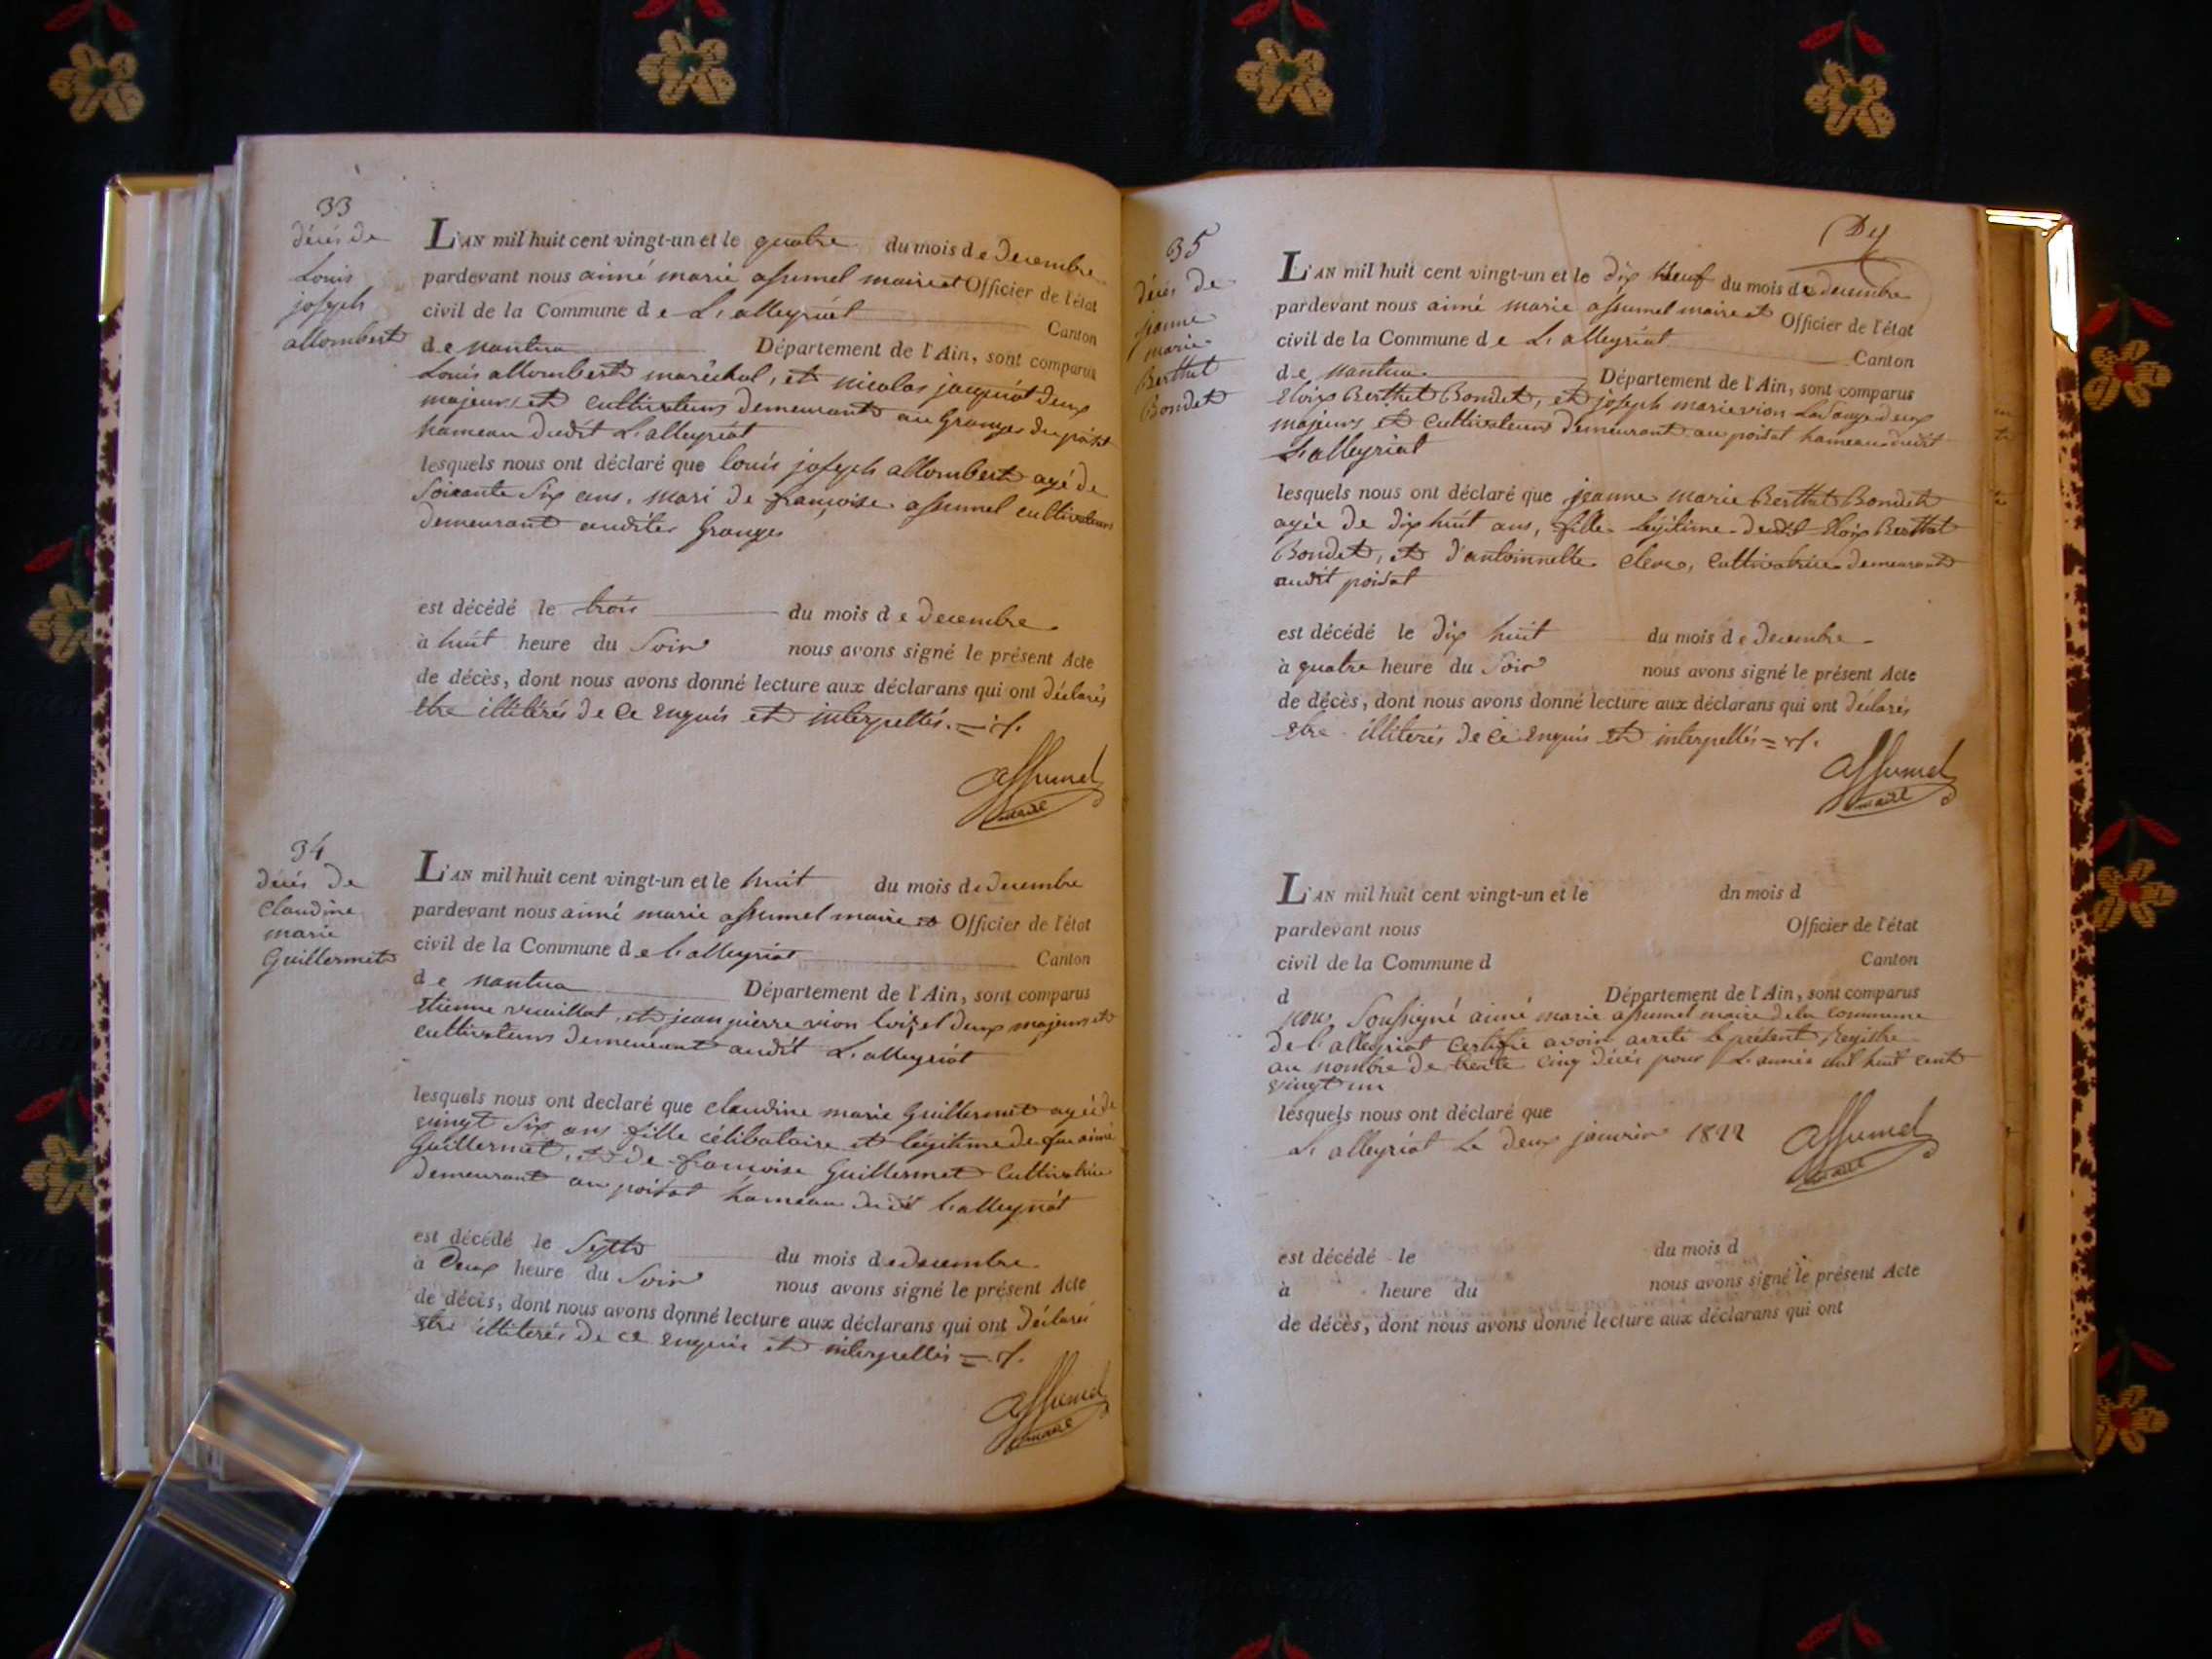 33
décès de
Louis
joseph
allombert
L'AN mil huit cent vingt-un et le quatre du mois de decembre
pardevant nous aimé marie assumel maire et Officier de l'état
civil de la Commune de L'alleyriat Canton
de nantua Département de l'Ain, sont comparus
Louis allombert maréchal, et nicolas jacquiot deux
majeurs et cultivateurs demeurants au Granges du poisat
hameau dudit L'alleyriat
lesquels nous ont déclaré que louis joseph allombert agé de
soixante six ans, mari de françoise assumel cultivateur
demeurant audites Granges
est décédé le trois du mois de decembre
à huit heure du soir nous avons signé le présent Acte
de décès, dont nous avons donné lecture aux déclarans qui ont déclarés
etre illitérés de ce enquis et interpellés.
assumel
maire
34
décès de
claudine
marie
Guillermet
L'AN mil huit cent vingt-un et le huit du mois de decembre
pardevant nous aimé marie assumel maire et Officier de l'état
civil de la Commune de l'alleyriat Canton
de nantua Département de l'Ain, sont comparus
etienne vuaillat, et jean pierre vion loizel deux majeurs et
cultivateurs demeurant audit L'alleyriat
lesquels nous ont declaré que claudine marie Guillermet agée de
vingt six ans fille célibataire et légitime de feu aimé
Guillermet, et de françoise Guillermet cultivatrice
demeurant au poisat hameau dudit l'alleyriat
est décédé le sept du mois de decembre
à Deux heure du soir nous avons signé le présent Acte
de décès, dont nous avons donné lecture aux déclarans qui ont déclarés
etre illiterés de ce enquis et interpellés
assumel
maire
35
décès de
jeanne
marie
Berthet
Bondet
L'AN mil huit cent vingt-un et le dix neuf du mois de decembre
pardevant nous aimé marie assumel maire et Officier de l'état
civil de la Commune de L'alleyriat Canton
de nantua Département de l'Ain, sont comparus
Eloix Berthet Bondet, et joseph marie vion deux
majeurs et cultivateurs demeurant au poisat hameau dudit
L'alleyriat
lesquels nous ont déclaré que jeanne marie Berthet Bondet
agée de dix huit ans, fille legitime dudit Eloix Berthet
Bondet, et d'antoinnette clerc, cultivatrice demeurant
audit poisat
est décédé le dix huit du mois de decembre
à quatre heure du soir nous avons signé le présent Acte
de décès, dont nous avons donné lecture aux déclarans qui ont déclarés
etre illiterés de ce enquis et interpellés
assumel
maire
L'AN mil huit cent vingt-un et le dn mois d
pardevant nous Officier de l'état
civil de la Commune d Canton
d Département de l'Ain, sont comparus
nous soussigné aimé marie assumel maire de la commune
de l'alleyriat certifie avoir arreté le présent Registre
au nombre de trente cinq décés pour L'année mil huit cent
vingt un
lesquels nous ont déclaré que
L'alleyriat Le deux janvier 1822
assumel
maire
est décédé le du mois d
à heure du nous avons signé le présent Acte
de décès, dont nous avons donné lecture aux déclarans qui ont